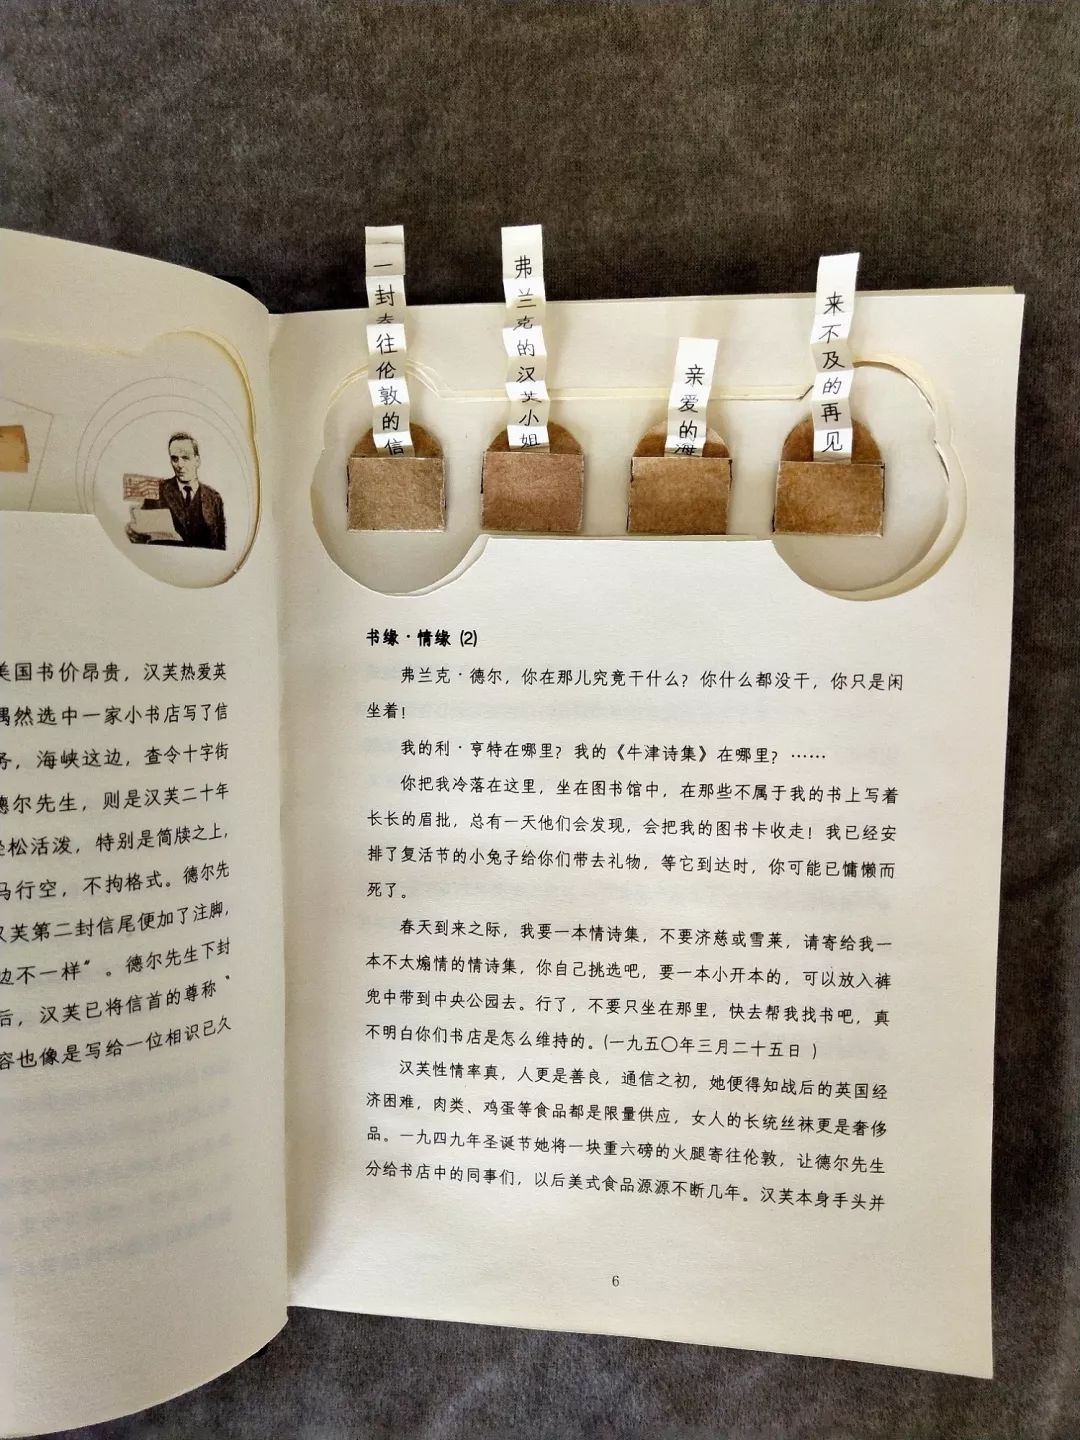 美国书价昂贵，汉芙热爱英
偶然选中一家小书店写了信
务，海峡这边，查令十字街
德尔先生，则是汉芙二十年
轻松活泼，特别是简牍之上，
马行空，不拘格式。德尔先
汉芙第二封信尾便加了注脚，
边不一样”。德尔先生下封
后，汉芙已将信首的尊称“
容也像是写给一位相识已久
一封寄往伦敦的信
弗兰克的汉芙小姐
亲爱的海
来不及的再见
书缘·情缘 (2)
弗兰克·德尔，你在那儿究竟干什么？你什么都没干，你只是闲
坐着！
我的利·亨特在哪里？我的《牛津诗集》在哪里？……
你把我冷落在这里，坐在图书馆中，在那些不属于我的书上写着
长长的眉批，总有一天他们会发现，会把我的图书卡收走！我已经安
排了复活节的小兔子给你们带去礼物，等它到达时，你可能已慵懒而
死了。
春天到来之际，我要一本情诗集，不要济慈或雪莱，请寄给我一
本不太煽情的情诗集，你自己挑选吧，要一本小开本的，可以放入裤
兜中带到中央公园去。行了，不要只坐在那里，快去帮我找书吧，真
不明白你们书店是怎么维持的。(一九五〇年三月二十五日 )
汉芙性情率真，人更是善良，通信之初，她便得知战后的英国经
济困难，肉类、鸡蛋等食品都是限量供应，女人的长统丝袜更是奢侈
品。一九四九年圣诞节她将一块重六磅的火腿寄往伦敦，让德尔先生
分给书店中的同事们，以后美式食品源源不断几年。汉芙本身手头并
6